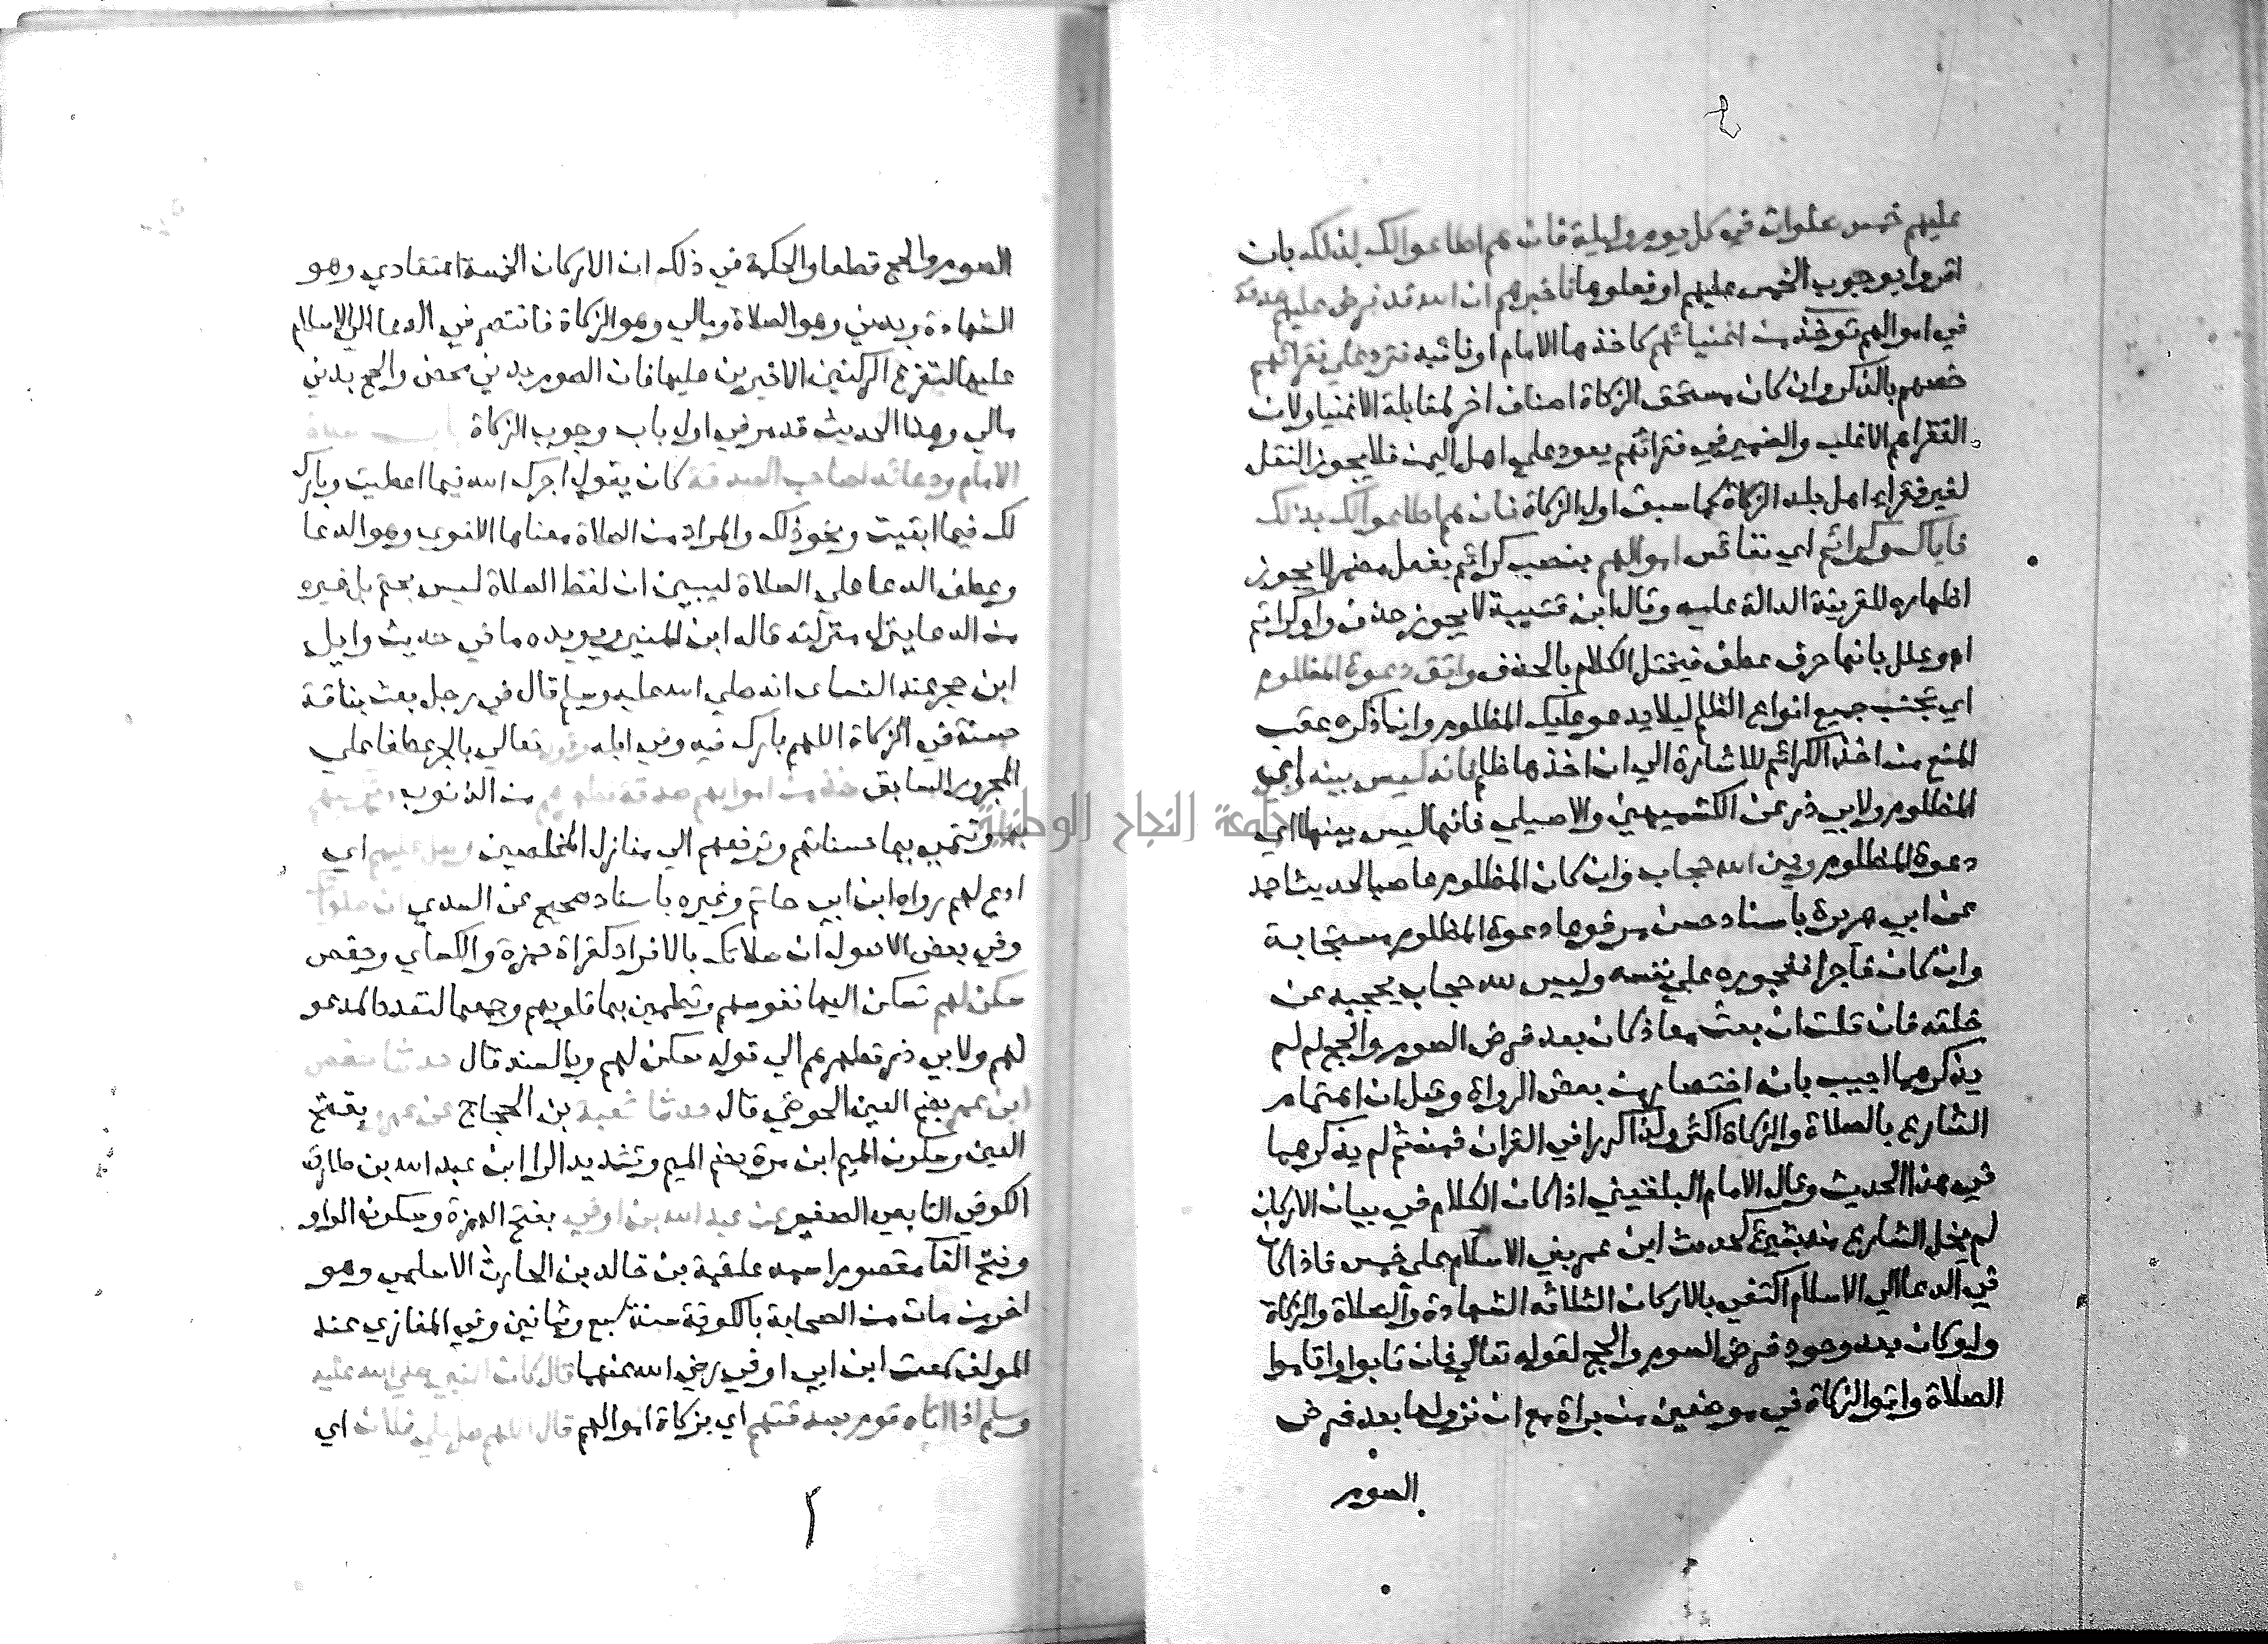 عليهم خمس صلوات في كل يوم وليلة فان هم اطاعوا لك بذلك بان
اقروا بوجوب الخمس عليهم او فعلوها فاخبرهم ان الله قد فرض عليهم صدقة
في اموالهم توخذ من اغنيائهم كاخذها الامام او نائبه فترد على فقرائهم
خصهم بالذكر وان كان مستحق الزكاة اصناف اخر لمقابلة الاغنيا ولان
الفقراهم الاغلب والضمير في فقرائهم يعود على اهل اليمن فلا يجوز النقل
لغير فقراء اهل بلد الزكاة كما سبق اول الزكاة فان هم اطاعوا لك بذلك
فاياك وكرائم اي نفائس اموالهم بنصب كرائم بفعل مضمر لا يجوز
اظهاره للقرينة الدالة عليه وقال ابن قتيبة لا يجوز حذف واو كرائم
اه وعلل بانها حرف عطف فيختل الكلام بالحذف واتق دعوة المظلوم
اي تجنب جميع انواع الظلم ليلا يدعو عليك المظلوم وانما ذكره عقب
المنع من اخذ الكرائم للاشارة الي ان اخذها ظلم فانه ليس بينه اي
المظلوم ولابي ذر عن الكشميهني والاصيلي فانها ليس بينها اي
دعوة المظلوم وبين الله حجاب وان كان المظلوم عاصيا لحديث احمد
عن ابي هريرة باسناد حسن مرفوعا دعوة المظلوم مستجابة
وان كان فاجرا ففجوره علي نفسه وليس لله حجاب يحجبه عن
خلقه فان قلت ان بعث معاذ كان بعد فرض الصوم والحج فلم لم
يذكرهما اجيب بانه اختصار من بعض الرواة وقيل ان اهتمام
الشارع بالصلاة والزكاة اكثر ولذا كررا في القران فمن ثم لم يذكرهما
في هذا الحديث وقال الامام البلقيني اذا كان الكلام في بيان الاركان
لم يخل الشارع منه بشيئ كحديث ابن عمر بني الاسلام على خمس فاذا كان
في الدعا الي الاسلام اكتفي بالاركان الثلاثه الشهادة والصلاة والزكاة
ولو كان بعد وجود فرض الصوم والحج لقوله تعالي فان تابوا واقاموا
الصلاة واتوا الزكاة في موضعين من براة مع ان نزولها بعد فرض
الصوم
الصوم والحج قطعا والحكمة في ذلك ان الاركان الخمسة اعتقادي وهو
الشهادة وبدني وهو الصلاة ومالي وهو الزكاة فاقتصر في الدعا الي الاسلام
عليها لتفرع الركنين الاخيرين عليها فان الصوم بدني محض والحج بدني
مالي وهذا الحديث قد مر في اول باب وجوب الزكاة
الامام ودعائه لصاحب الصدقة كان يقول اجرك الله فيما اعطيت وبارك
لك فيما ابقيت ونحو ذلك والمراد من الصلاة معناها اللغوي وهو الدعا
وعطف الدعا علي الصلاة ليبين ان لفظ الصلاة ليس بحتم بل غيره
من الدعا ينزل منزلته قاله ابن المنير ويويده ما في حديث وايل
ابن حجر عند النساى انه صلي الله عليه وسلم قال في رجل بعث بناقة
حسنة في الزكاة اللهم بارك فيه وفي ابله وقوله تعالي بالجر عطفا علي
المجرور السابق خذ من اموالهم صدقة تطهرهم من الذنوب وتزكيهم
بها وتنمي بها حسناتهم وترفعهم الي منازل المخلصين وصل عليهم اي
ادع لهم رواه ابن ابي حاتم وغيره باسناد صحيح عن السدي ان صلواتك
وفي بعض الاصول ان صلاتك بالافراد كقراة حمزة والكساي وحفص
سكن لهم تسكن اليها نفوسهم وتطمين بها قلوبهم وجمعها لتعدد المدعو
لهم ولابي ذر تطهرهم الي قوله سكن لهم وبالسند قال حدثنا حفص
ابن عمر بضم العين الحوضي قال حدثنا شعبة بن الحجاج عن عمرو بفتح
العين وسكون الميم ابن مرة بضم الميم وتشديد الرا ابن عبد الله بن طارق
الكوفي التابعي الصغير عن عبد الله بن ابي اوفي بفتح الهمزة وسكون الواو
وفتح الفا مقصورا اسمه علقمة بن خالد بن الحارث الاسلمي وهو
اخر من مات من الصحابة بالكوفة سنة سبع وثمانين وفي المغازي عند
المولف سمعت ابن ابي اوفي رضي الله عنهما قال كان النبي صلي الله عليه
وسلم اذا اتاه قوم بصدقتهم اي بزكاة اموالهم قال اللهم صل علي فلان اي